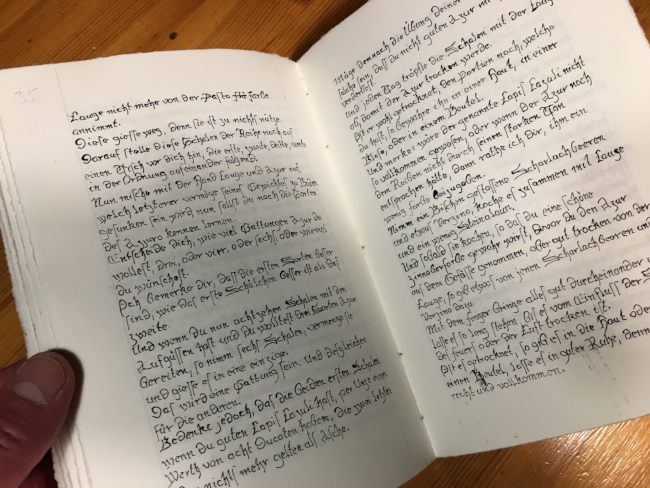 35
Lauge nicht mehr von der Pasta für Farbe
annimmt.
Diese giesse weg, denn sie ist zu nichts nütze.
Darauf stelle diese Schalen der Reihe nach auf
einen Tisch vor dich hin, die erste, zweite, dritte, vierte
in der Ordnung aufeinander folgend.
Nun mische mit der Hand Lauge und Azur auf,
welch letzterer vermöge seines Gewichtes zu Boden
gesunken sein wird nun sollst du noch die Sorten
des Azuro kennen lernen.
Entscheide dich, wie viel Gattungen Azur du
wollest, drei, oder vier, oder sechs, oder wieviel
du wünschest.
Ich bemerke dir, dass die ersten Sorten besser
sind, wie das erste Schälchen besser ist als das
zweite.
Und wenn du nun achtzehn Schalen mit den
Aufgüssen hast und du wolltest drei Sorten Azur
bereiten, so nimm sechs Schalen, vermenge sie
und giesse es in eine einzige.
Das wird eine Gattung sein. Und desgleichen
für die anderen.
Bedenke jedoch, dass die beiden ersten Schalen
wenn du guten Lapis Lasuli hast, per Unze einen
Werth von acht Ducaten haben, die zwei letzten
nichts mehr gelten als Asche.
Möge dennoch die Übung deiner
solche sein, dass du nicht guten Azur mit
verderbst
Und jeden Tag tröpfle die Schalen mit der Lauge
ab, damit der Azur trocken werde.
Ist er wohl getrocknet, den Portionen nach, welche
du hast, so bewahre ihn in einer Haut, in einer
Blase, oder in einem Beutel.
Und merke: wäre der genannte Lapis Lasuli nicht
so vollkommen gewesen, oder wenn der Azur nach
dem Reiben nicht durch seinen starken Ton
entsprochen hätte, dann rathe ich dir, ihm ein
wenig Farbe beizugeben.
Nimm ein bischen gestossene Scharlach Beeren
und etwas Verzino, koche es zusammen mit Lauge
und ein wenig Steinalaun.
Und sobald sie kochen, so dass du eine schöne
Zinnoberfarbe gewahr wirst, bevor du den Azur
aus dem Gefässe genommen, aber gut trocken von der
Lauge, so gib etwas von jenen Scharlach Beeren und
Verzino dazu
Mit dem Finger bringe alles gut durcheinander und
lasse es so lang stehen bis es vom Einfluss der
des Feuer oder der Luft trocken ist.
Ist es getrocknet, so gib es in die Haut oder
einen Beutel, lasse es in guter Ruhe, denn
recht und vollkommen.